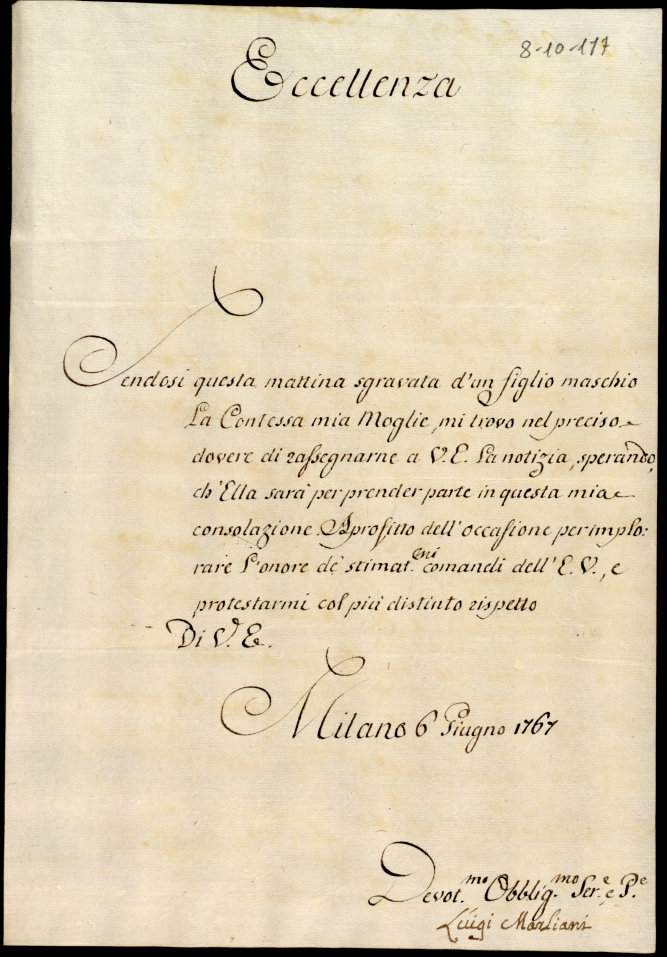 8-10-117
Eccellenza
Sendosi questa mattina sgravata d'un figlio maschio
La Contessa mia Moglie, mi trovo nel preciso
dovere di rassegnarne a V.E. La notizia, sperando,
ch'Ella sarà per prender parte in questa mia
consolazione. Aprofitto dell'occasione per implo:
rare L'onore de' stimat.emi comandi dell'E.V., e
protestarmi col più distinto rispetto
Di V.E.
Milano 6 Giugno 1767
Devot.mo Obblig.mo Ser.e, e P.e
Luigi Marliani